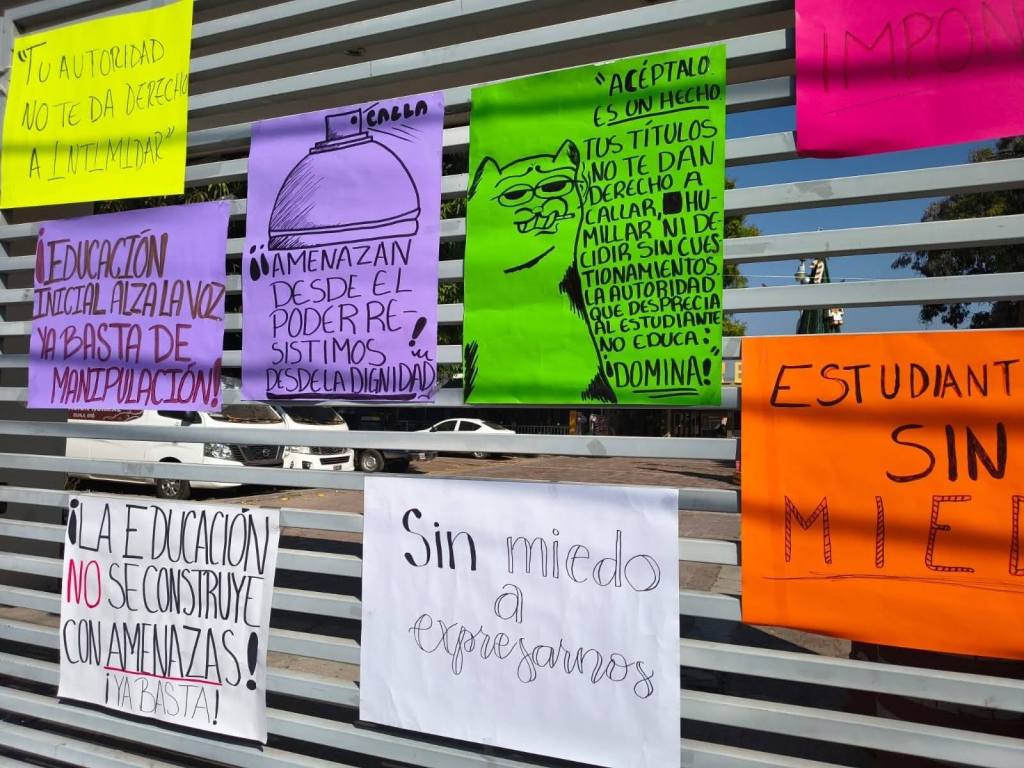 "TU AUTORIDAD
NO TE DA DERECHO
A INTIMIDAR"
CALLA
¡¡AMENAZAN
DESDE EL
PODER RE-
SISTIMOS
DESDE LA DIGNIDAD!!
"ACÉPTALO.
ES UN HECHO
TUS TÍTULOS
NO TE DAN
DERECHO A
CALLAR, HU-
MILLAR NI DE
CIDIR SIN CUES
TIONAMIENTOS.
LA AUTORIDAD
QUE DESPRECIA
AL ESTUDIANTE
NO EDUCA:
¡DOMINA!"
IMPON
¡EDUCACIÓN
INICIAL ALZA LA VOZ
YA BASTA DE
MANIPULACIÓN!
ESTUDIANT
SIN
MIED
¡LA EDUCACIÓN
NO SE CONSTRUYE
CON AMENAZAS!
¡YA BASTA!
Sin miedo
a
expresarnos